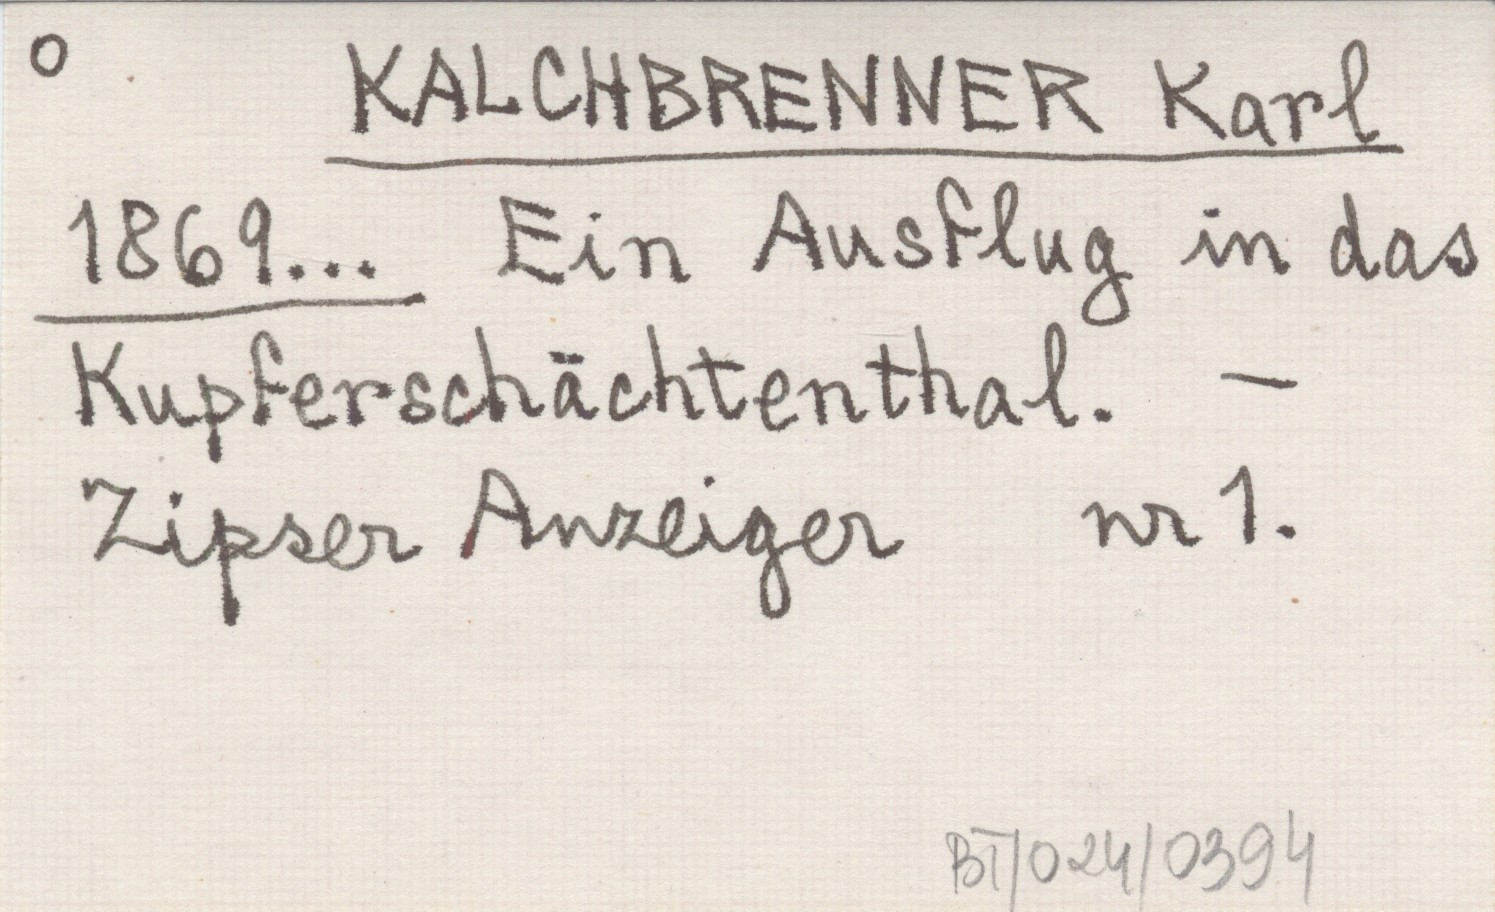 o KALCHBRENNER Karl
1869... Ein Ausflug in das
Kupferschächtenthal. —
Zipser Anzeiger nr 1.
BT/024/0394